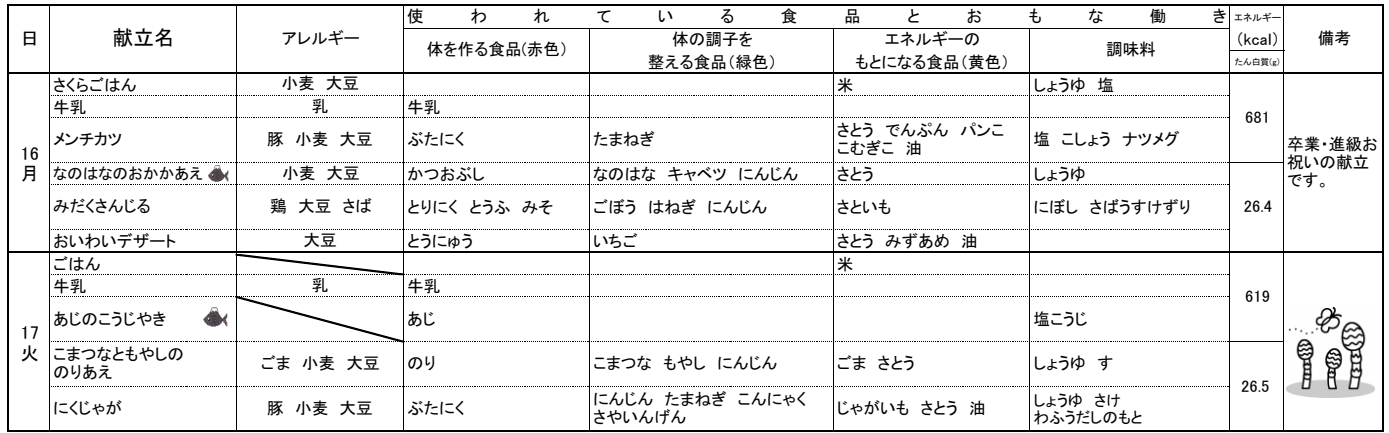 日 献立名 アレルギー 使われている食品とおもな働き エネルギー (kcal) たん白質(g) 備考
体を作る食品(赤色) 体の調子を 整える食品(緑色) エネルギーの もとになる食品(黄色) 調味料
16 月
さくらごはん 小麦 大豆 米 しょうゆ 塩
牛乳 乳 牛乳
681
メンチカツ 豚 小麦 大豆 ぶたにく たまねぎ さとう でんぷん パンこ
こむぎこ 油 塩 こしょう ナツメグ
卒業・進級お
祝いの献立
です。
なのはなのおかかあえ 小麦 大豆 かつおぶし なのはな キャベツ にんじん さとう しょうゆ
みだくさんじる 鶏 大豆 さば とりにく とうふ みそ ごぼう はねぎ にんじん さといも にぼし さばうすけずり
26.4
おいわいデザート 大豆 とうにゅう いちご さとう みずあめ 油
17 火
ごはん 米
牛乳 乳 牛乳
619
あじのこうじやき あじ 塩こうじ
こまつなともやしの
のりあえ ごま 小麦 大豆 のり こまつな もやし にんじん ごま さとう しょうゆ す
26.5
にくじゃが 豚 小麦 大豆 ぶたにく にんじん たまねぎ こんにゃく
さやいんげん じゃがいも さとう 油 しょうゆ さけ
わふうだしのもと